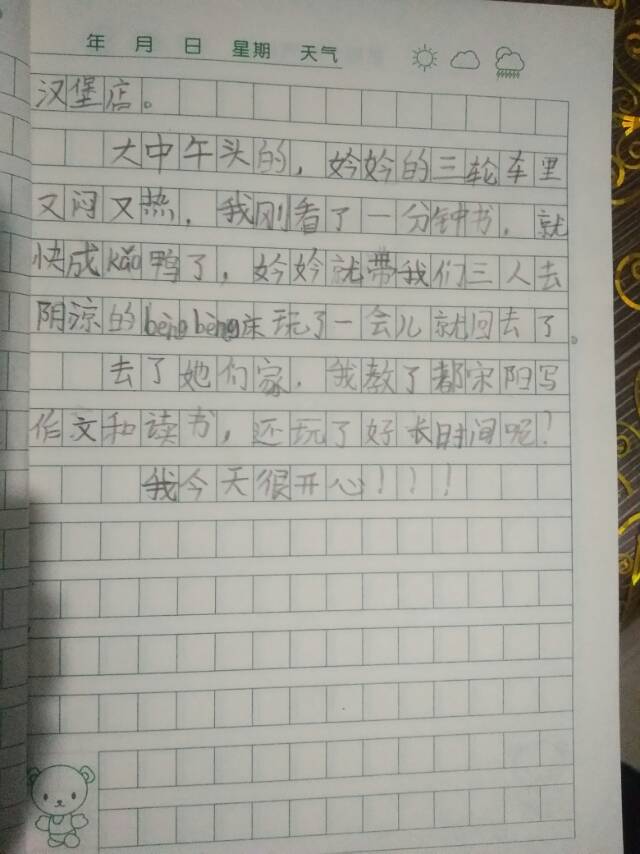 年 月 日 星期 天气
汉堡店。
大中午头的，妗妗的三轮车里
又闷又热，我刚看了一分钟书，就
快成kǎo鸭了，妗妗就带我们三人去
阴凉的bèngbèng床玩了一会儿就回去了。
去了她们家，我教了都宋阳写
作文和读书，还玩了好长时间呢？
我今天很开心！！！